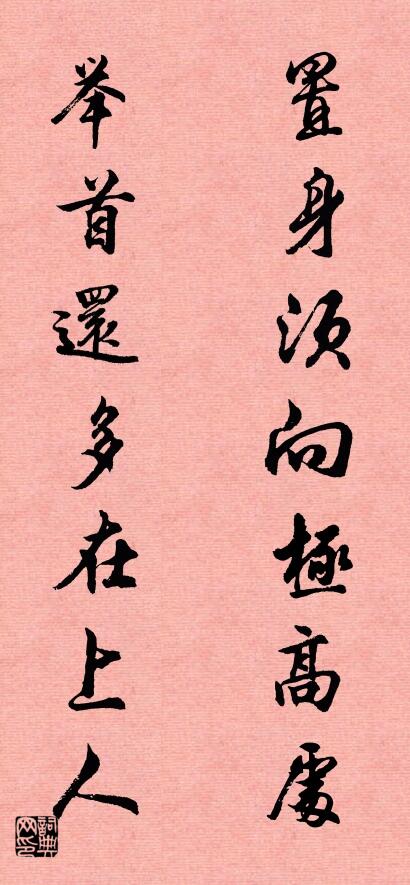 置身须向極高處
举首還多在上人
詞典网印